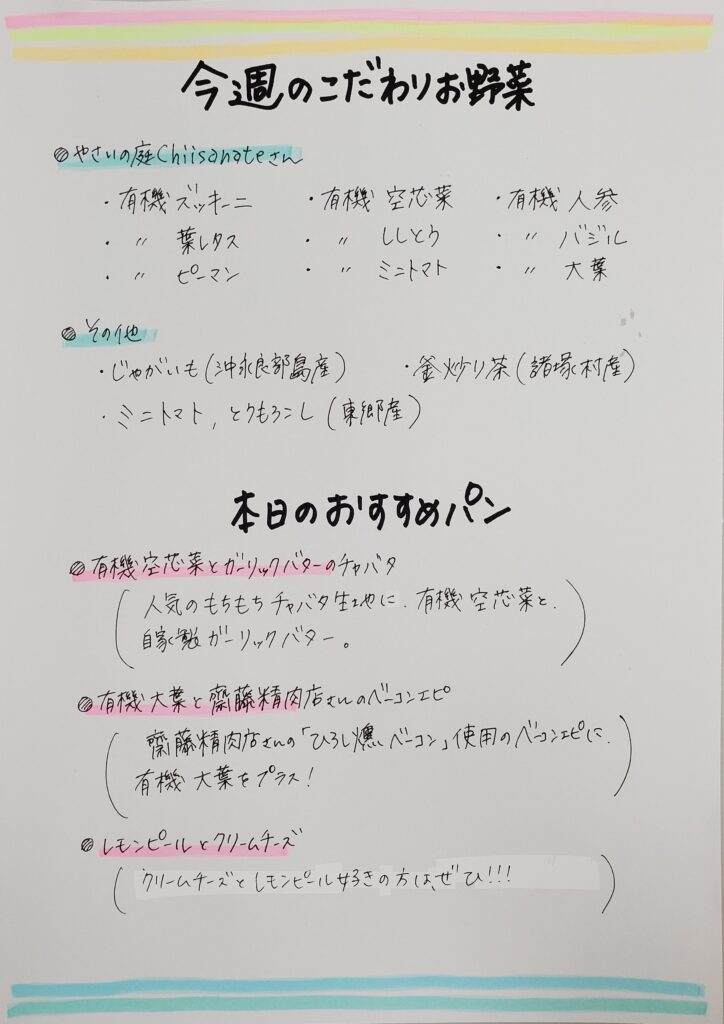 今週のこだわりお野菜
やさいの庭Chiisanateさん
・有機 ズッキーニ ・有機 空芯菜 ・有機 人参
・ 〃 葉レタス ・ 〃 ししとう ・ 〃 バジル
・ 〃 ピーマン ・ 〃 ミニトマト ・ 〃 大葉
その他
・じゃがいも(沖永良部島産) ・釜炒り茶(諸塚村産)
・ミニトマト, とうもろこし (東郷産)
本日のおすすめパン
有機空芯菜とガーリックバターのチャバタ
(人気のもちもちチャバタ生地に、有機空芯菜と、
自家製ガーリックバター。)
有機大葉と齋藤精肉店さんのベーコンエピ
(齋藤精肉店さんの「ひろし燻ベーコン」使用のベーコンエピに、
有機大葉をプラス!)
レモンピールとクリームチーズ
(クリームチーズとレモンピール好きの方は、ぜひ!!!)